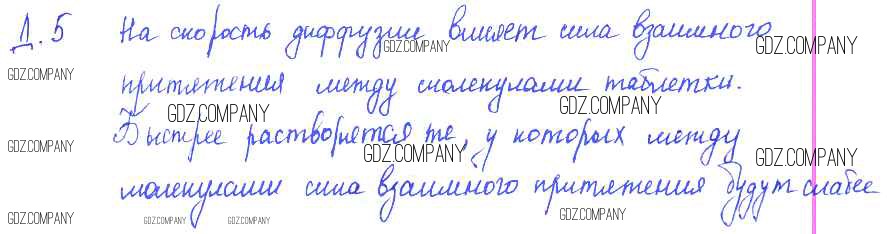 Д.5 На скорость диффузии влияет сила взаимного
GDZ.COMPANY GDZ.COMPANY GDZ.COMPANY
притяжения между молекулами таблетки.
GDZ.COMPANY GDZ.COMPANY
Быстрее растворяется те, у которых между
GDZ.COMPANY GDZ.COMPANY GDZ.COMPANY
молекулами сила взаимного притяжения будут слабее
GDZ.COMPANY GDZ.COMPANY GDZ.COMPANY GDZ.COMPANY